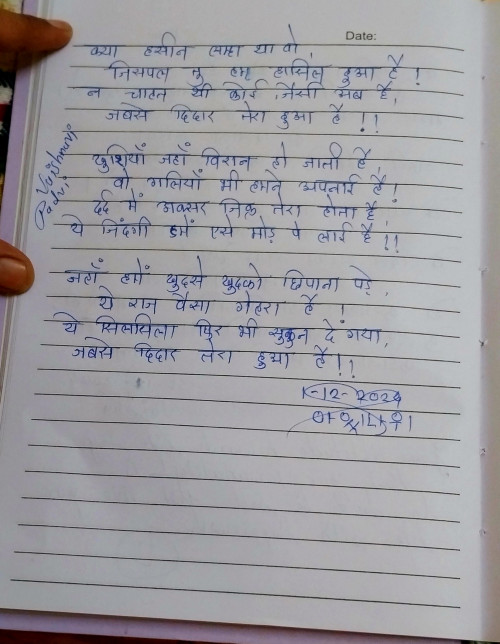 Date:
क्या हसीन लम्हा था वो,
जिसपल तु हमे हासिल हुआ है!
न चाहत थी कोई, जैसी अब है,
जबसे दिदार तेरा हुआ है!!
खुशियाँ जहाँ विरान हो जाती है,
वो गलियाँ भी हमने अपनाई है!
दर्द मे अक्सर जिक्र तेरा होता है,
ये जिंदगी हमें एसे मोड़ पे लाई है!!
जहाँ हमें खुदसे खुदको छिपाना पड़े,
ये राज कैसा गेहरा है!
ये सिलसिला फिर भी सुकुन दे गया,
जबसे दिदार तेरा हुआ है!!
-12-2024
Vaishnavi